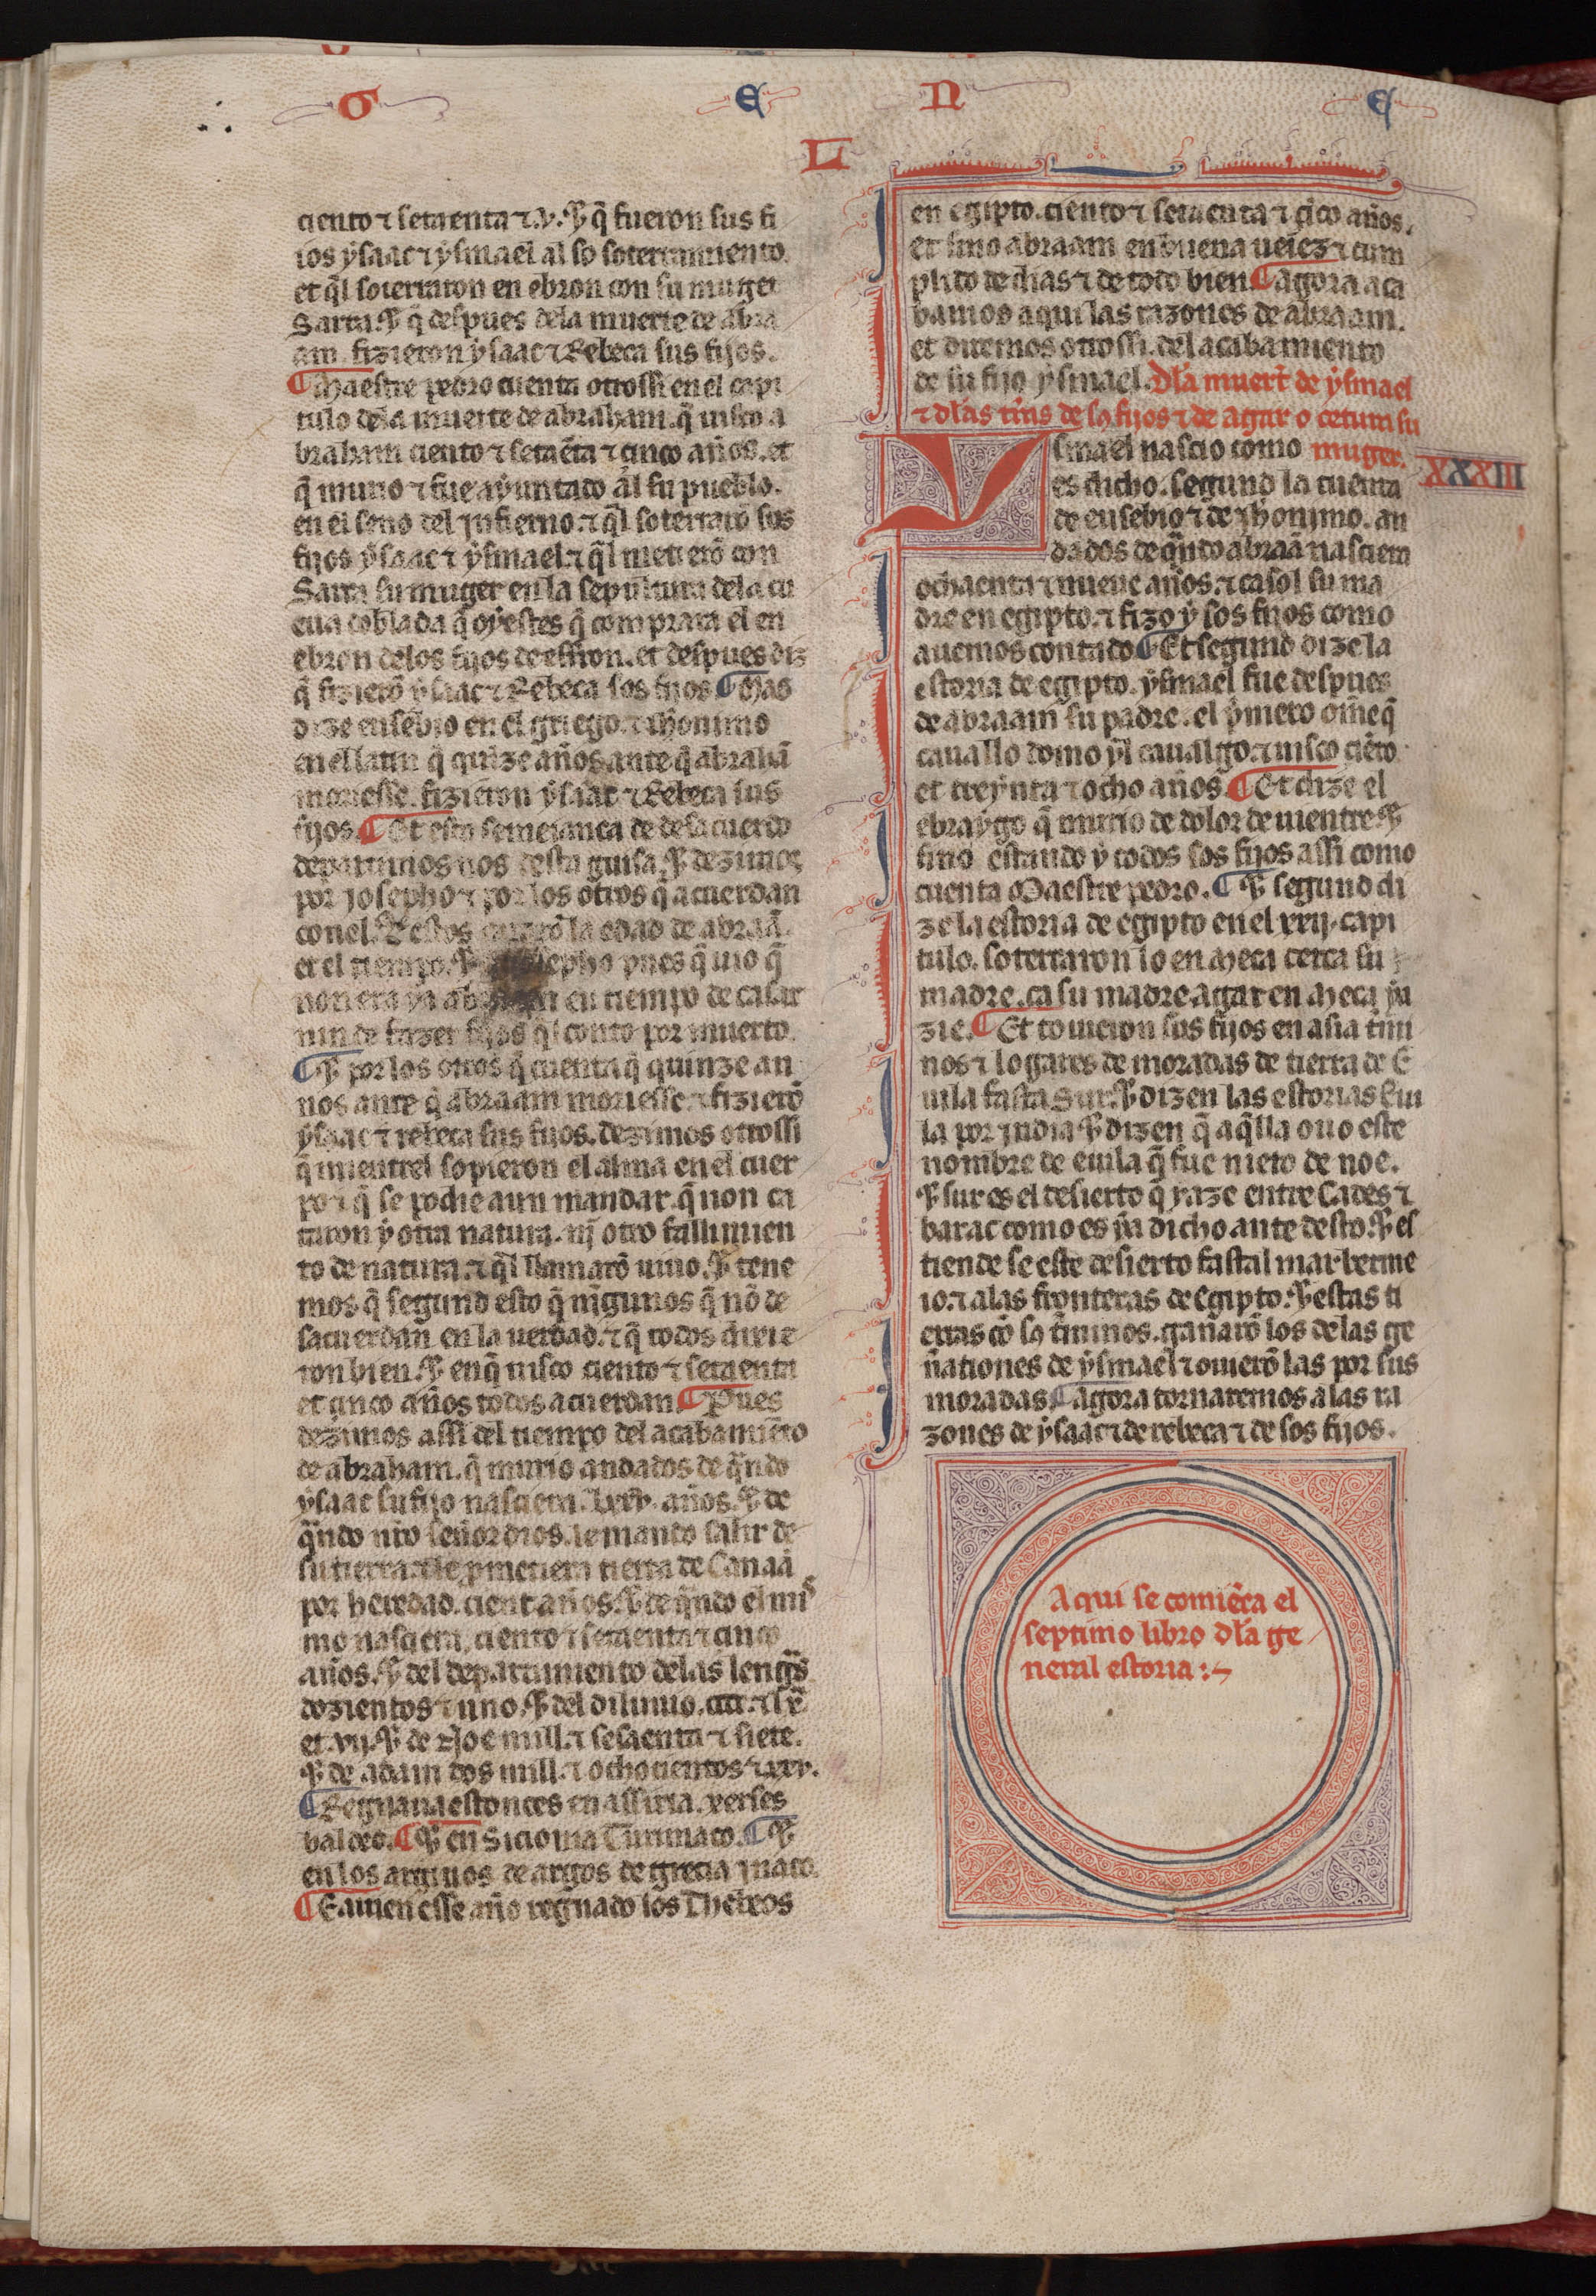 G E N E
L
ciento ⁊ setaenta ⁊.v. ⁊ q̃ fueron sus fi
ios ysaac ⁊ ysmael al so soterramiento.
et q̃l soterraron en ebron con su muger
Sarra. ⁊ q̃ despues dela muerte de abra
am. fizieron ysaac ⁊ Rebeca sus fijos.
¶ Maestre pedro cuenta otrossi en el capi
tulo dela muerte de abraham. q̃ uisco a
braham ciento ⁊ setaẽta ⁊ cinco años. et
q̃ murio ⁊ fue ayuntado al su pueblo.
en el seno del jnfierno. ⁊ q̃l soterrarõ sos
fijos ysaac ⁊ ysmael. ⁊ q̃l metierõ con
Sarra su muger en la sepultura dela cu
eua doblada q̃ oyestes q̃ comprara el en
ebron delos fijos de effron. et despues diz
q̃ fizierõ ysaac ⁊ Rebeca sos fijos. ¶ Mas
dize eusebio en el griego. ⁊ ihonimo
en el latin q̃ quinze años ante q̃ abrahã
moriesse. fizieron ysaac ⁊ Rebeca sus
fijos. ¶ Et esta semeiança de desacuerdo
departimos nos desta guisa. ⁊ dezimos
por josepho ⁊ por los otros q̃ acuerdan
con el. la edad de abraã.
et el tiempo. ⁊ pues q̃ uio q̃
non era ya en tiempo de casar
nin de fazer fijos q̃l conto por muerto.
¶ ⁊ por los otros q̃ cuenta q̃ quinze an
nos ante q̃ abraam moriesse. ⁊ fizierõ
ysaac ⁊ rebeca sus fijos. dezimos otrossi
q̃ mientrel sopieron el alma en el cuer
po ⁊ q̃ se podie aun mandar. q̃ non ca
taron y otra natura. nj̃ otro fallimien
to de natura. ⁊ q̃l llamarõ uiuo. ⁊ tene
mos q̃ segund esto q̃ nĩgunos q̃ nõ de
sacuerdan en la uerdad. ⁊ q̃ todos dixie
ron bien. ⁊ en q̃ uisco ciento ⁊ setaenta
et cinco años todos acuerdan. ¶ Pues
dezimos assi del tiempo del acabamiẽto
de abraham. q̃ murio andados de q̃ndo
ysaac su fijo nasciera. lxxv. años. ⁊ de
q̃ndo nr̃o señor dios. le mando salir de
su tierra. ⁊ le p̃metiera tierra de Canaã
por heredad. cient años. ⁊ de q̃ndo el mis
mo nasciera. ciento ⁊ setaenta ⁊ cinco
años. ⁊ del departimiento delas leng̃s
dozientos ⁊ uno. ⁊ del diluuio. ccc. ⁊ lx̃
et .vij. ⁊ de Noe mill. ⁊ sesaenta ⁊ siete.
⁊ de adam dos mill. ⁊ ochocientos ⁊ xxv.
¶ Regnaua estonces en assiria. xerses
baleo. ¶ ⁊ en Siciona Turimaco. ¶ ⁊
en los argiuos de argos de grecia jnaco.
¶ E auien esse año regnado los Thebeos
en egipto. ciento ⁊ setaenta ⁊ cĩco años.
et fino abraam en buena ueiez ⁊ cum
plido de dias ⁊ de todo bien. ¶ agora aca
bamos aqui las razones de abraam.
et diremos otrossi. del acabamiento
de su fijo ysmael. Dla muert̃ de ysmael
⁊ dlas tr̃as de sos fijos ⁊ de agar o cetura su
muger.
XXXIII
Ysmael nascio como
es dicho. segund la cuenta
de eusebio ⁊ de jhonimo. an
dados de q̃ndo abraã nasciera
ochaenta ⁊ nueue años. ⁊ casol su ma
dre en egipto. ⁊ fizo y sos fijos como
auemos contado ¶ Et segund dize la
estoria de egipto. ysmael fue despues
de abraam su padre. el p̃mero omne q̃
cauallo domo ⁊ yl caualgo. ⁊ uisco ciẽto
et treynta ⁊ ocho años. ¶ Et dize el
ebraygo q̃ murio de dolor de uientre. ⁊
fino estando y todos sos fijos assi como
cuenta Maestre pedro. ¶ ⁊ segund di
ze la estoria de egipto en el xxij. capi
tulo. soterraron lo en Meca cerca su
madre. ca su madre agar en Meca ya
zie. ¶ Et touieron sus fijos en asia t̃mi
nos ⁊ logares de moradas de tierra de E
uila fasta Sur. ⁊ dizen las estorias Eui
la por jndia. ⁊ dizen q̃ aq̃lla ouo este
nombre de euila q̃ fue nieto de noe.
⁊ sur es el desierto q̃ yaze entre Cades ⁊
barac como es ya dicho ante desto. ⁊ es
tiende se este desierto fastal mar berme
io. ⁊ a las fronteras de Egipto. ⁊ estas ti
erras cõ sos t̃minos. gañarõ los de las ge
ñationes de ysmael ⁊ ouierõ las por sus
moradas. ¶ agora tornaremos a las ra
zones de ysaac ⁊ de rebeca ⁊ de sos fijos.
Aqui se comiẽça el
septimo libro dla ge
neral estoria :~